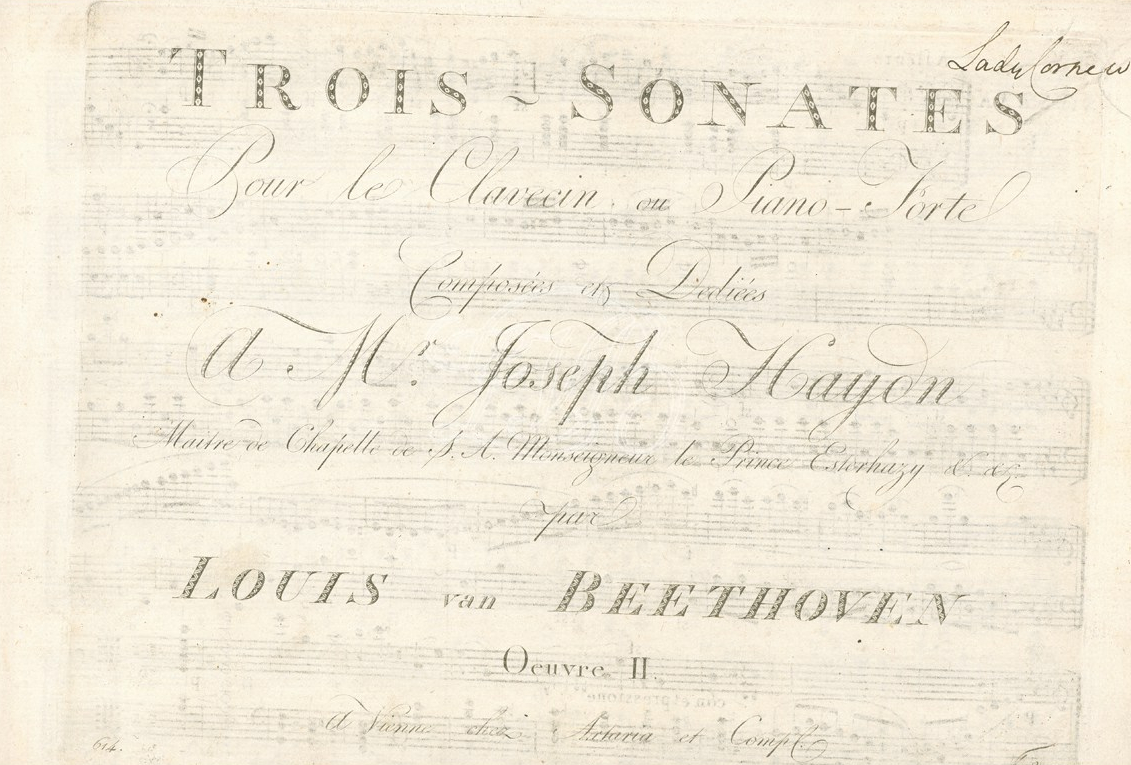 Lady Cornew
TROIS ~ SONATES
Pour le Clavecin ou Piano-Forte
Composées et Dediées
A Mr. Joseph Haydn
Maitre de Chapelle de S. A. Monseigneur le Prince Esterhazy &. &.
par
LOUIS van BEETHOVEN
Oeuvre II.
con espressione
à Vienne chez Artaria et Comp.
614.